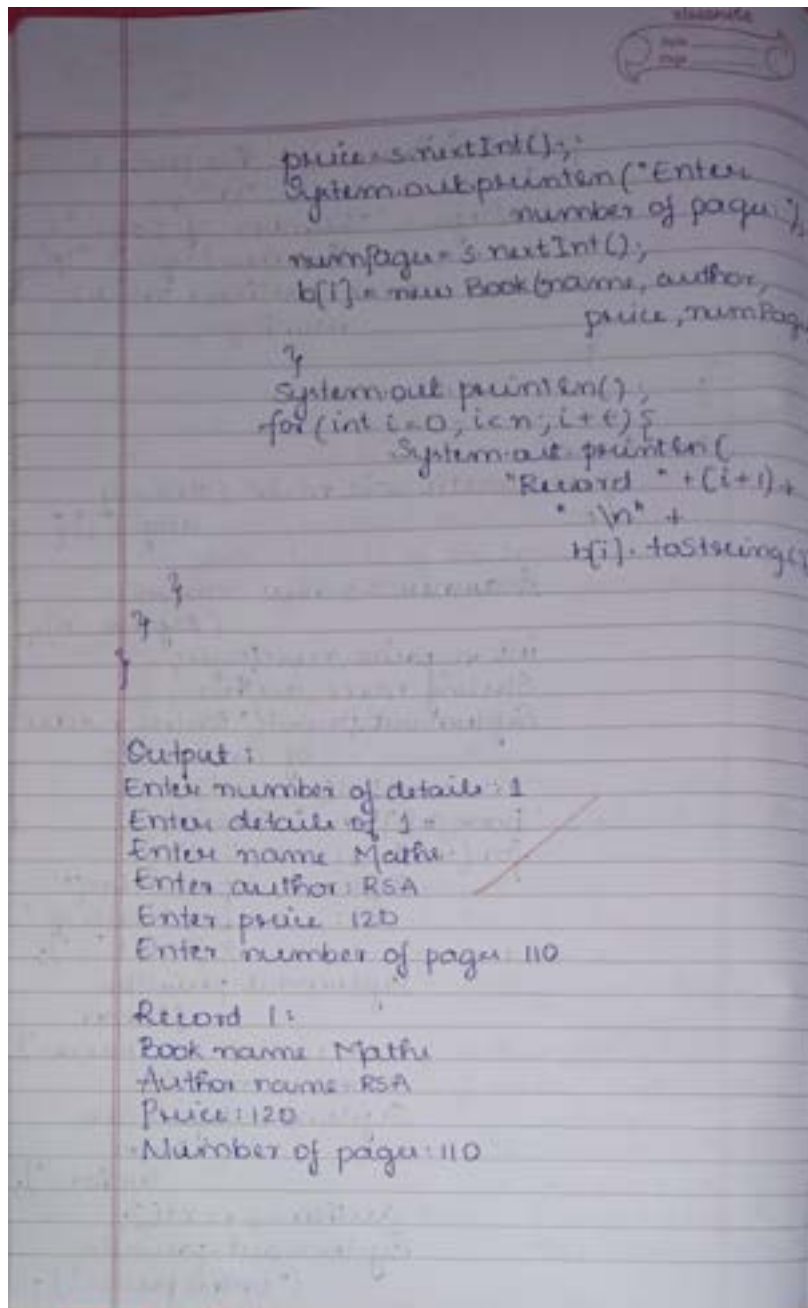 classmate
Date
Page
price = s.nextInt();
System.out.println("Enter
number of pages:");
numPages = s.nextInt();
b[i] = new Book(name, author,
price, numPag
}
System.out.println();
for(int i=0; i<n; i++){
System.out.println(
"Record " + (i+1) +
" :\n" +
b[i].toString()
}
}
}
Output :
Enter number of details: 1
Enter details of 1 =
Enter name: Maths
Enter author: RSA
Enter price 120
Enter number of pages 110
Record 1:
Book name: Maths
Author name: RSA
Price: 120
Number of pages: 110